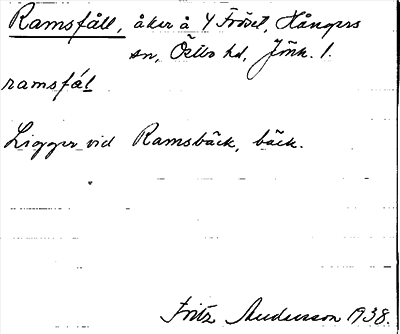 Ramsfåll, åker å Y Fröset, Hångers
sn, Östbo hd, Jönk. l.
ramsfǻl
Ligger vid Ramsbäck, bäck.
Fritz Andersson 1938.